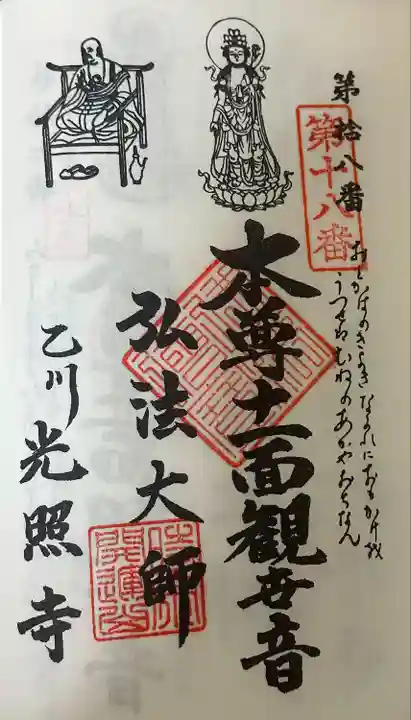 第拾八番
第十八番
おとがはのきよきながれにおもかげを
うつせばむねのあかやおちなん
本尊十一面観世音
弘法大師
乙川光照寺